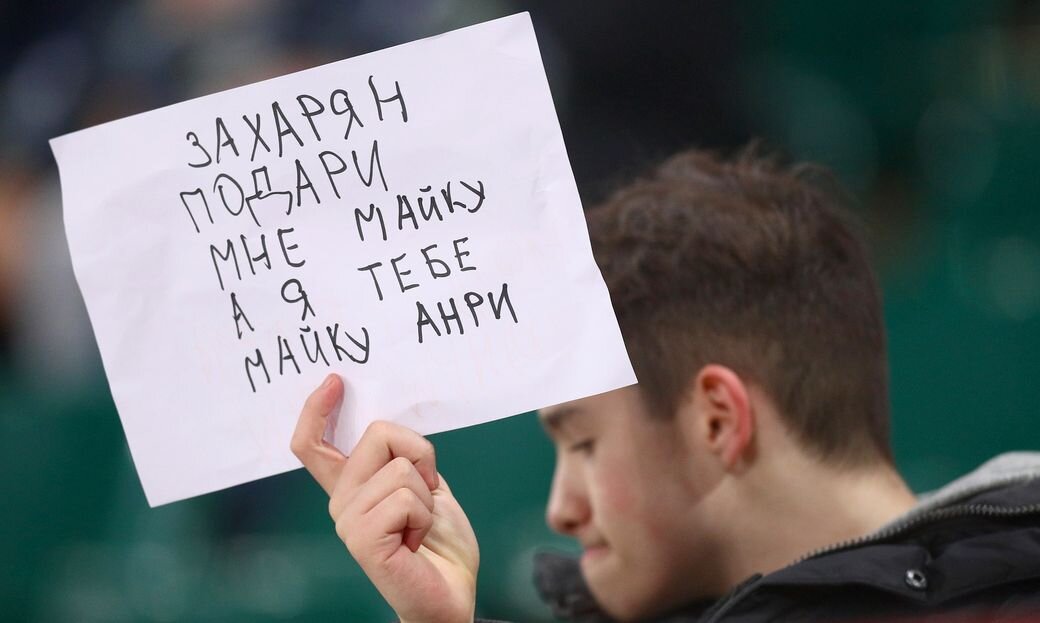 ЗАХАРЯН
ПОДАРИ
МНЕ МАЙКУ
А Я ТЕБЕ
МАЙКУ АНРИ